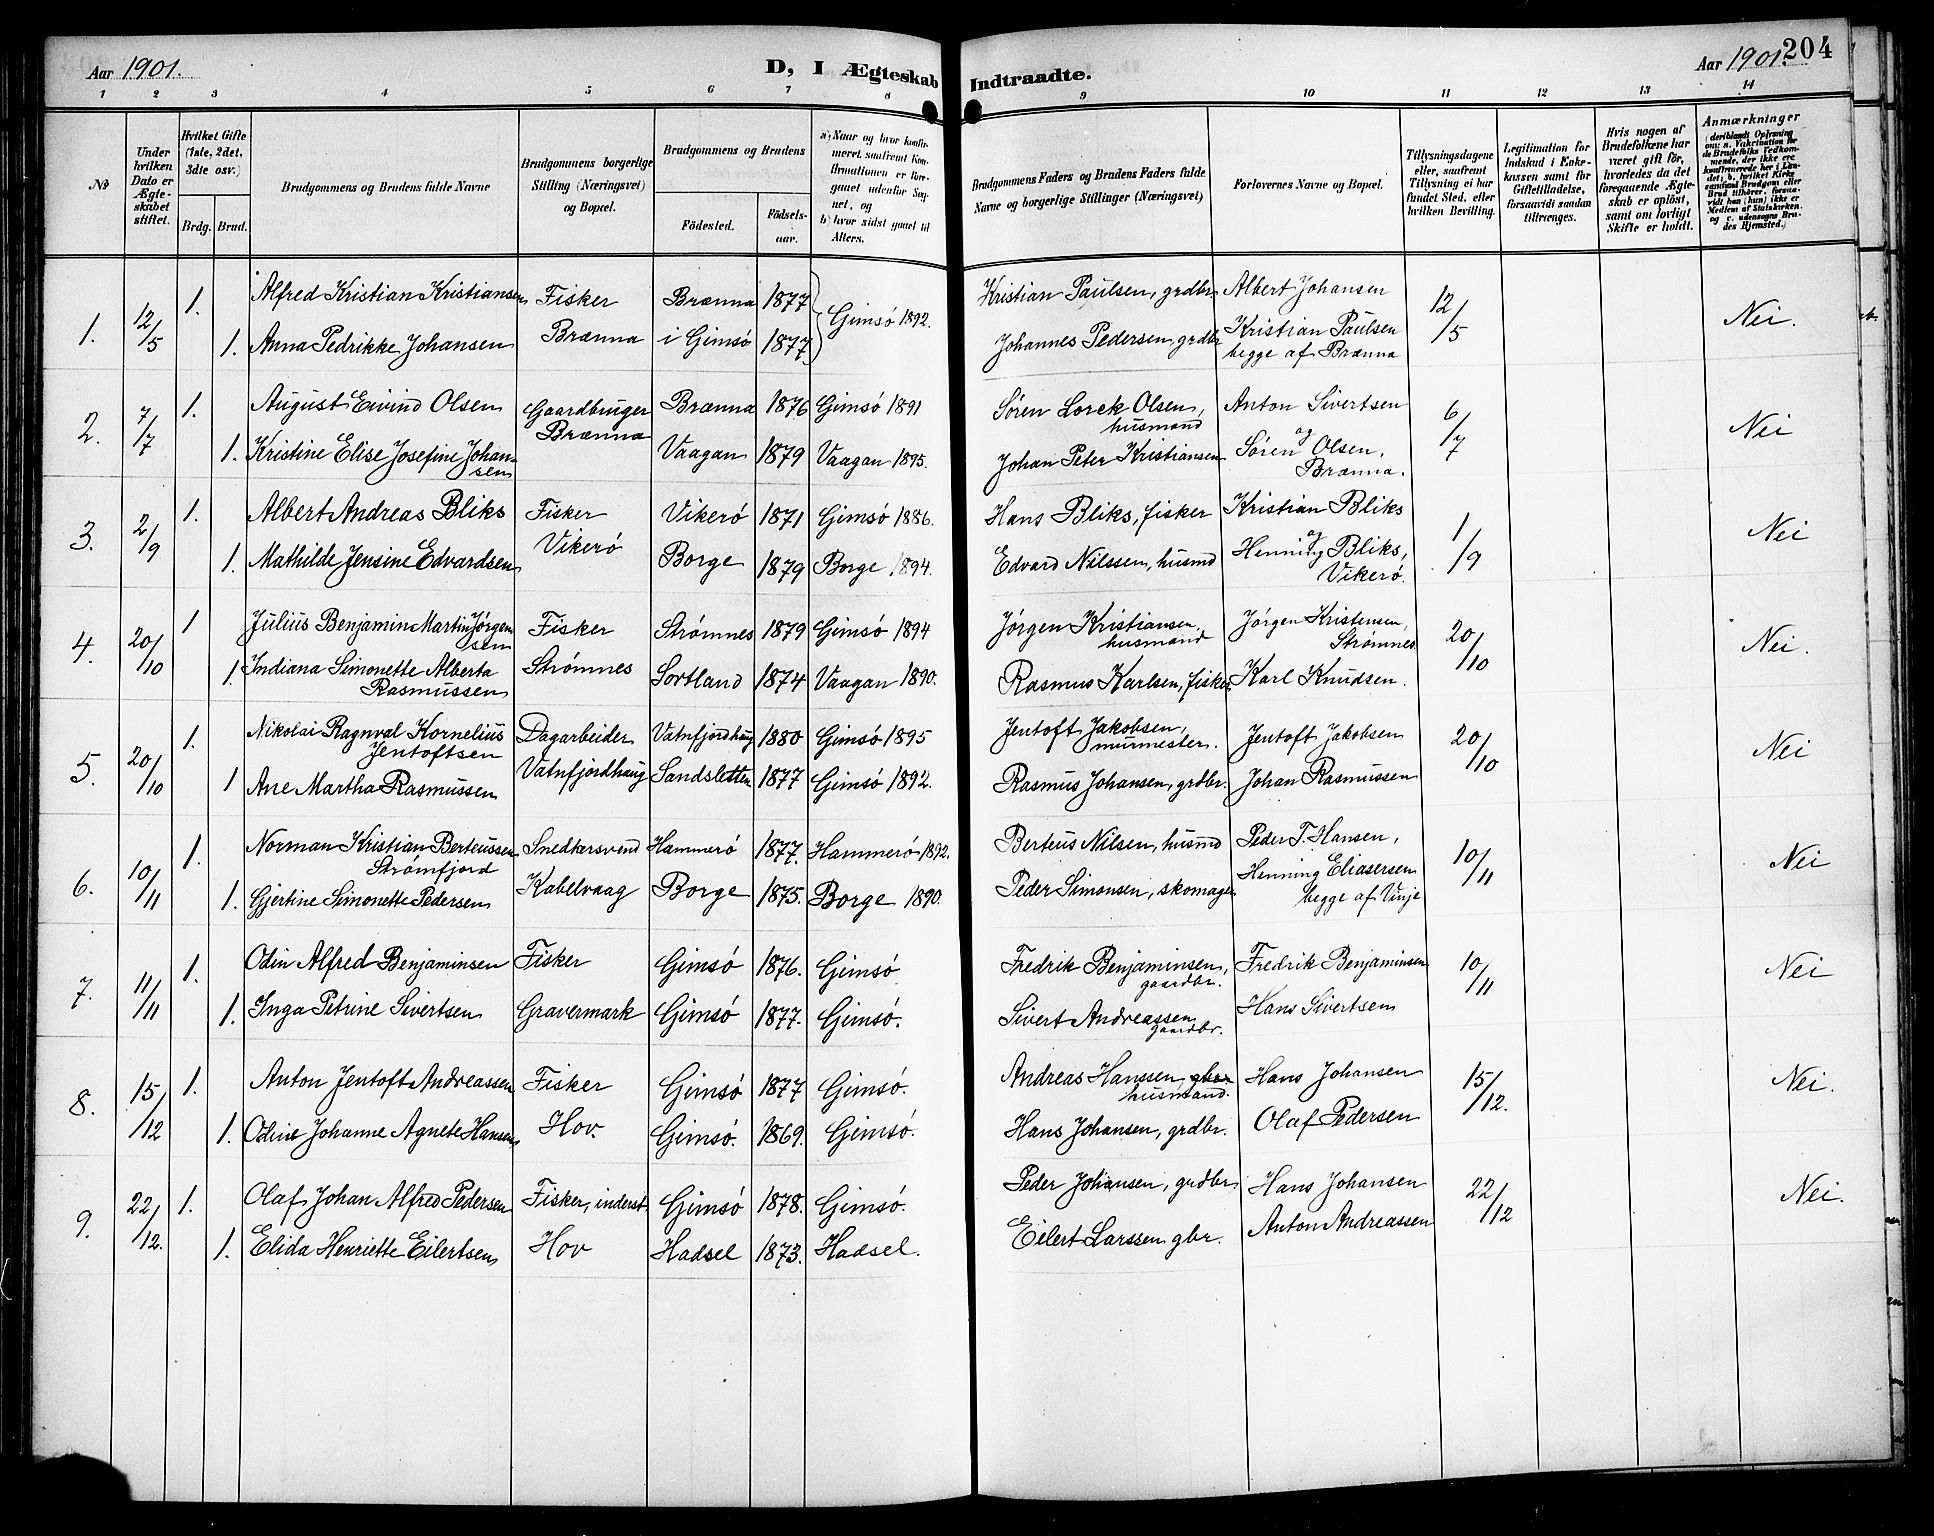 Aar 1901. D, I Ægteskab Indtraadte. Aar 1901. 204
1 2 3 4 5 6 7 8 9 10 11 12 13 14
No
Under hvilken Dato er Ægteskabet stiftet.
Hvilket Gifte (1ste, 2det, 3die osv.)
Brdg. Brud.
Brudgommens og Brudens fulde Navne
Brudgommens borgerlige Stilling (Næringsvei) og Bopæl.
Brudgommens og Brudens
Födested. Födselsaar.
a) Naar og hvor konfirmeret, saafremt Konfirmationen er foregaaet udenfor Sognet, og
b) hvor sidst gaaet til Alters.
Brudgommens Faders og Brudens Faders fulde Navne og borgerlige Stillinger (Næringsvei)
Forlovernes Navne og Bopæl.
Tillysningsdagene eller, saafremt Tillysning ei har fundet Sted, efter hvilken Bevilling.
Legitimation for Indskud i Enkekassen samt for Giftetilladelse, forsaavidt saadan tiltrænges.
Hvis nogen af Brudefolkene har været gift för, hvorledes da det foregaaende Ægteskab er oplöst, samt om lovligt Skifte er holdt.
Anmærkninger
(deriblandt Oplysning om: a. Vakcination for de Brudefolks Vedkommende, der ikke ere konfirmerede her i Landet; b. hvilket Kirkesamfund Brudgom eller Brud tilhörer, forsaavidt han (hun) ikke er Medlem af Statskirken, og c. udensogns Brudes Hjemsted.)
1. 12/5 1. Alfred Kristian Kristiansen Fisker Brænna 1877 Gimsö 1892. Kristian Paulsen, grdbr Albert Johansen 12/5 Nei.
1. Anna Pedrikke Johansen Brænna i Gimsö 1877 Johannes Pedersen, grdbr Kristian Paulsen
begge af Brænna
2. 7/7 1. August Eivind Olsen Gaardbruger Brænna 1876 Gimsö 1891 Søren Lorck Olsen, husmand Anton Sivertsen 6/7 Nei
1. Kristine Elise Josefine Johansen Brænna Vaagan 1879 Vaagan 1895. Johan Peter Kristiansen og Søren Olsen,
Brænna.
3. 2/9 1. Albert Andreas Bliks Fisker Vikerö 1871 Gimsö 1886. Hans Bliks, fisker Kristian Bliks 1/9 Nei
1. Mathilde Jensine Edvardsen Vikerö Borge 1879 Borge 1894. Edvard Nilssen, husmd og Henning Bliks,
Vikerö.
4. 20/10 1 Julius Benjamin Martin Jörgensen Fisker Strömnes 1879 Gimsö 1894 Jörgen Kristiansen, husmand Jörgen Kristensen, Strömnes 20/10 Nei.
1. Indiana Simonette Alberta Rasmussen Strömnes Sortland 1874 Vaagan 1890. Rasmus Karlsen, fisker Karl Knudsen.
5. 20/10 1. Nikolai Ragnval Kornelius Jentoftsen Dagarbeider Vatnfjordhaug 1880 Gimsö 1895 Jentoft Jakobsen, murmester. Jentoft Jakobsen 20/10 Nei
1 Ane Martha Rasmussen Vatnfjordhaug Sandsletten 1877 Gimsö 1892. Rasmus Johansen, grdbr. Johan Rasmussen
6. 10/11 1. Norman Kristian Berteussen Strömfjord Snedkersvend Hammerö 1877. Hammerö 1892. Berteus Nilsen, husmd Peder T. Hansen, 10/11 Nei
1. Gjertine Simonette Pedersen Kabelvaag Borge 1875. Borge 1890. Peder Simonsen, skomager Henning Eliasersen
begge af Vinje
7. 11/11 1. Odin Alfred Benjaminsen Fisker Gimsö 1876. Gimsö Fredrik Benjaminsen, gaardbr. Fredrik Benjaminsen 10/11 Nei
1. Inga Petrine Sivertsen Gravermark Gimsö 1877. Gimsö. Sivert Andreassen gaardbr. Hans Sivertsen
8. 15/12 1. Anton Jentoft Andreassen Fisker Gimsö 1877 Gimsö. Andreas Hanssen, gbr husmand. Hans Johansen 15/12. Nei.
1. Odine Johanne Agnete Hansen Hov. Gimsö. 1869. Gimsö. Hans Johansen, grdbr. Olaf Pedersen
9. 22/12. 1. Olaf Johan Alfred Pedersen Fisker, inderst Gimsö 1878. Gimsö. Peder Johansen, grdbr. Hans Johansen 22/12 Nei.
1. Elida Henriette Eilertsen Hov Hadsel 1873. Hadsel. Eilert Larssen gbr. Anton Andreassen